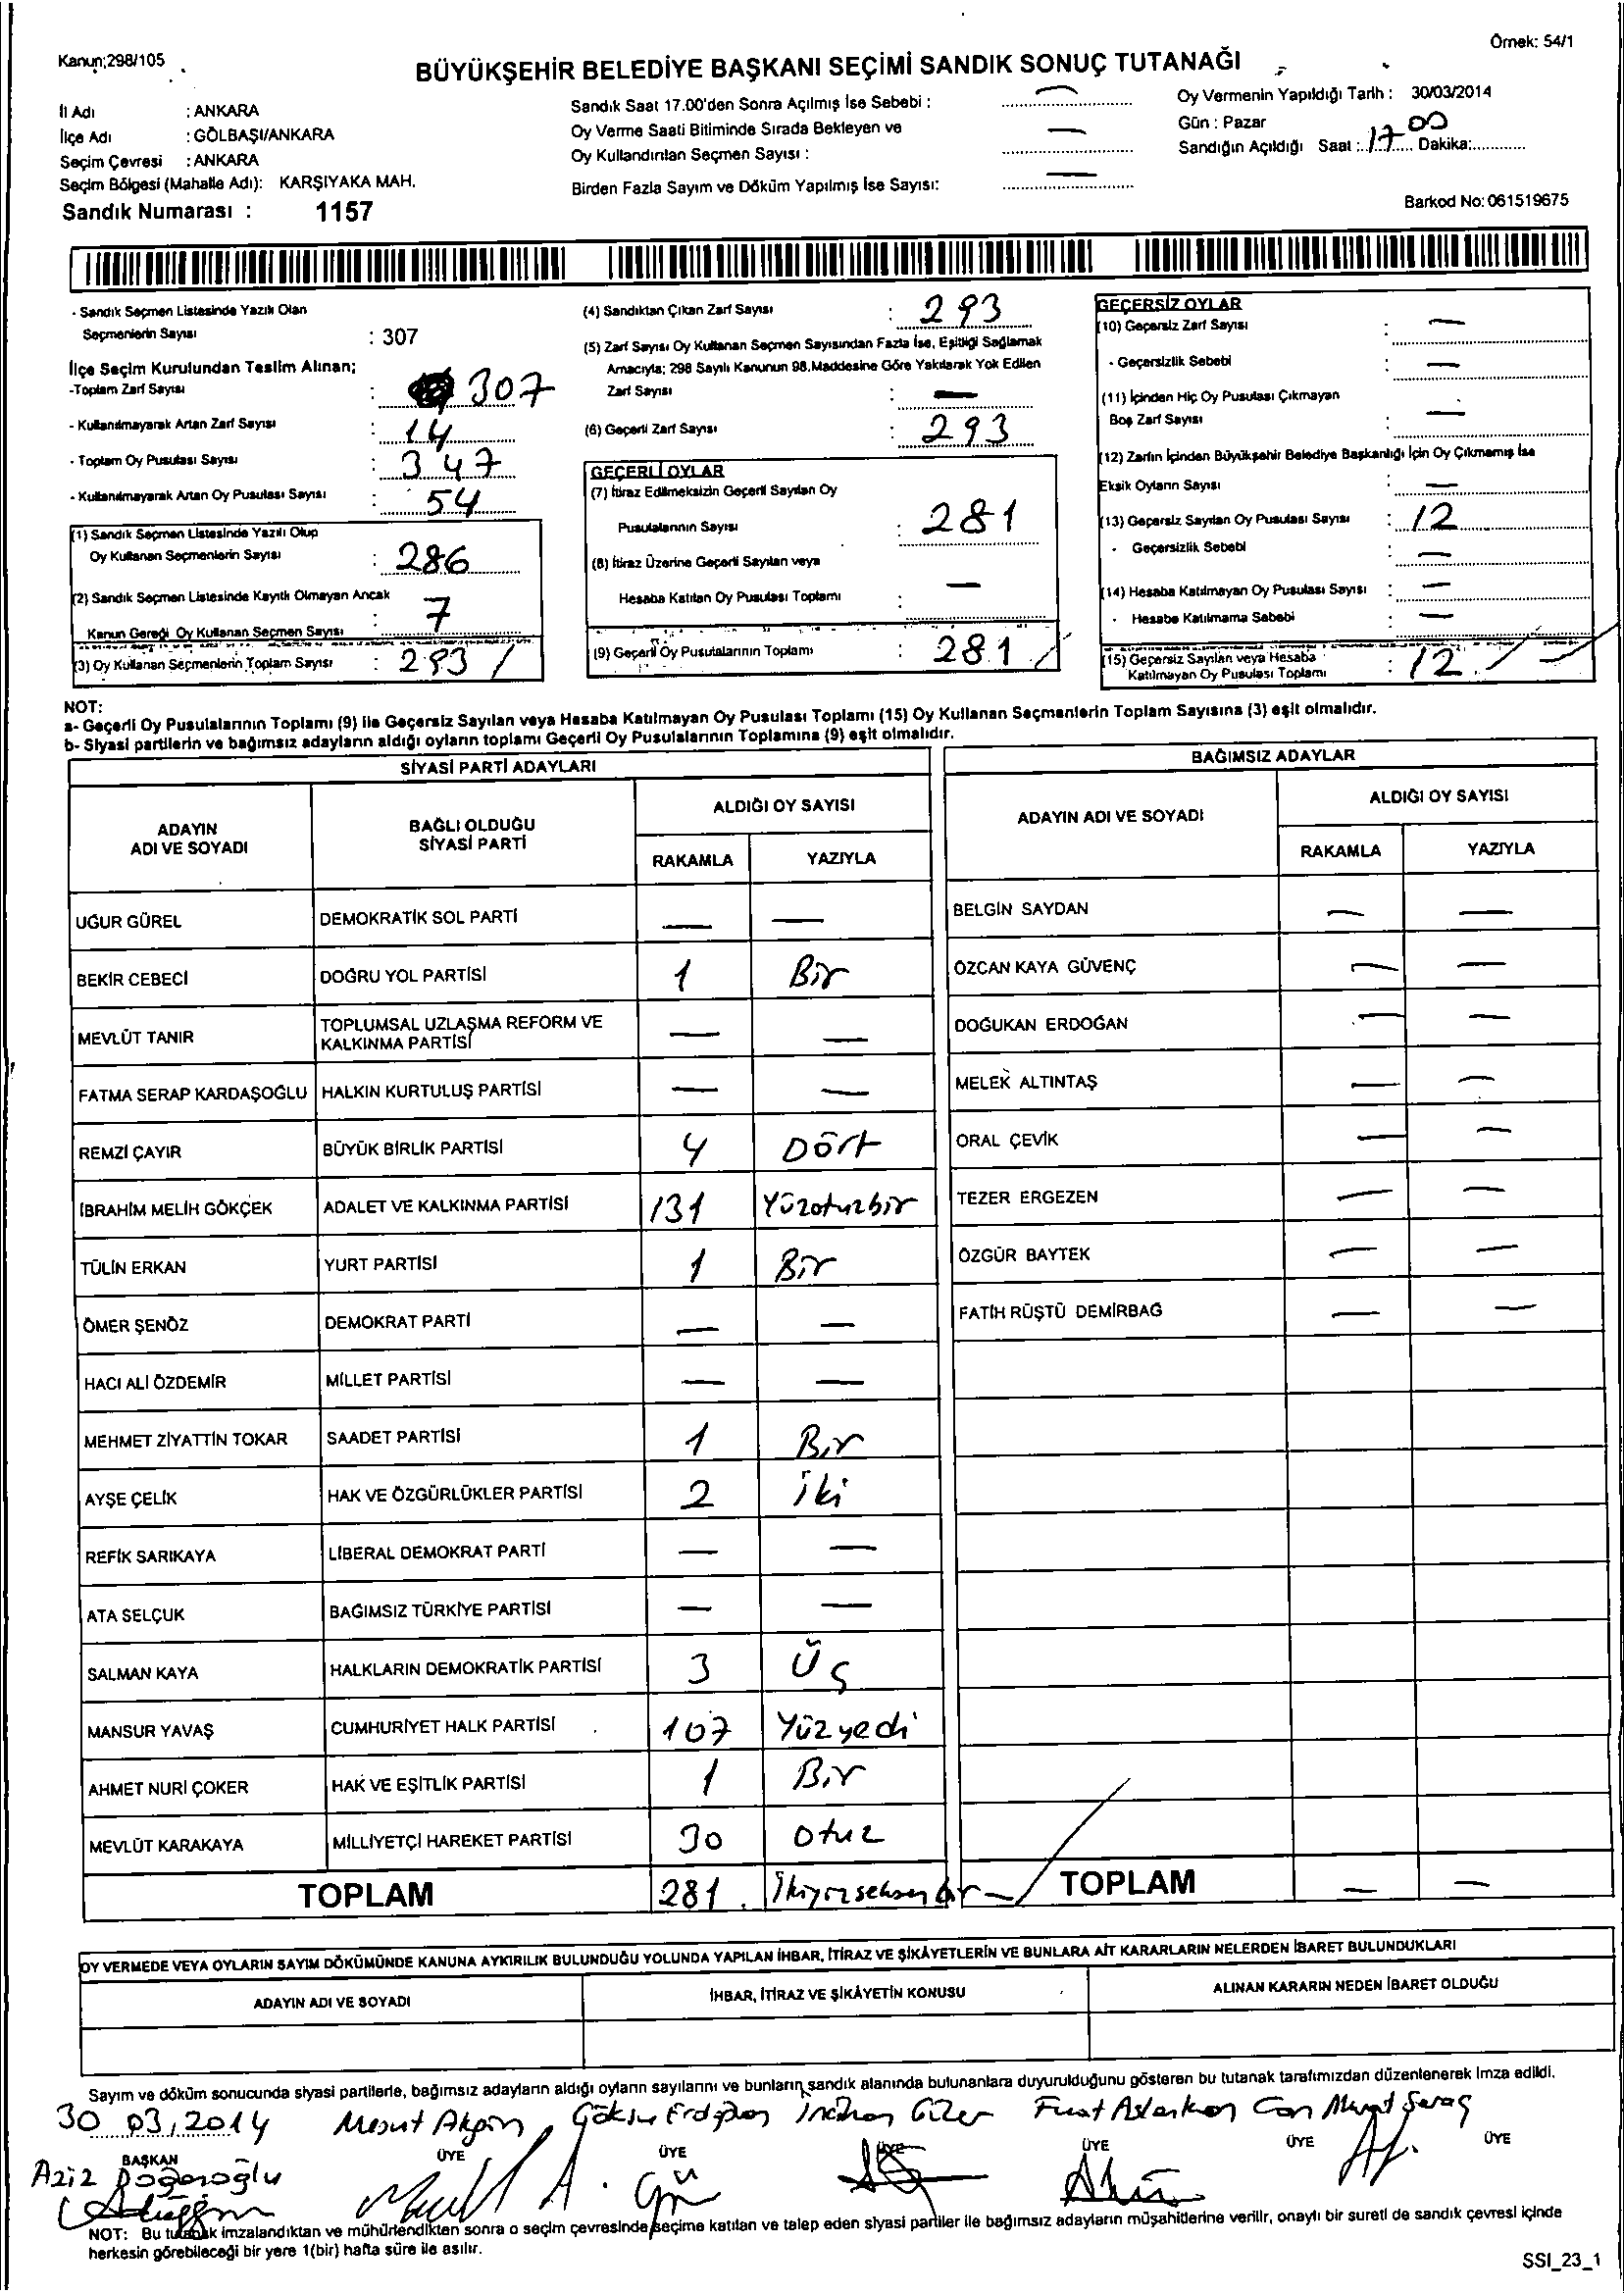 Kanun;298/105
Örnek: 54/1
BÜYÜKŞEHİR BELEDİYE BAŞKANI SEÇİMİ SANDIK SONUÇ TUTANAĞI
İl Adı : ANKARA
İlçe Adı : GÖLBAŞI/ANKARA
Seçim Çevresi : ANKARA
Seçim Bölgesi (Mahalle Adı): KARŞIYAKA MAH.
Sandık Numarası : 1157
Sandık Saat 17.00'den Sonra Açılmış İse Sebebi : —
Oy Verme Saati Bitiminde Sırada Bekleyen ve
Oy Kullandırılan Seçmen Sayısı : —
Birden Fazla Sayım ve Döküm Yapılmış İse Sayısı: —
Oy Vermenin Yapıldığı Tarih : 30/03/2014
Gün : Pazar
Sandığın Açıldığı Saat : 17 Dakika: 00
Barkod No: 061519675
- Sandık Seçmen Listesinde Yazılı Olan
Seçmenlerin Sayısı : 307
İlçe Seçim Kurulundan Teslim Alınan;
-Toplam Zarf Sayısı : 307
- Kullanılmayarak Artan Zarf Sayısı : 14
- Toplam Oy Pusulası Sayısı : 347
- Kullanılmayarak Artan Oy Pusulası Sayısı : 54
(1) Sandık Seçmen Listesinde Yazılı Olup
Oy Kullanan Seçmenlerin Sayısı : 286
(2) Sandık Seçmen Listesinde Kayıtlı Olmayan Ancak
Kanun Gereği Oy Kullanan Seçmen Sayısı : 7
(3) Oy Kullanan Seçmenlerin Toplam Sayısı : 293 /
(4) Sandıktan Çıkan Zarf Sayısı : 293
(5) Zarf Sayısı Oy Kullanan Seçmen Sayısından Fazla İse, Eşitliği Sağlamak
Amacıyla; 298 Sayılı Kanunun 98.Maddesine Göre Yakılarak Yok Edilen
Zarf Sayısı : —
(6) Geçerli Zarf Sayısı : 293
GEÇERLİ OYLAR
(7) İtiraz Edilmeksizin Geçerli Sayılan Oy
Pusulalarının Sayısı : 281
(8) İtiraz Üzerine Geçerli Sayılan veya
Hesaba Katılan Oy Pusulası Toplamı : —
(9) Geçerli Oy Pusulalarının Toplamı : 281 /
GEÇERSİZ OYLAR
(10) Geçersiz Zarf Sayısı : —
- Geçersizlik Sebebi : —
(11) İçinden Hiç Oy Pusulası Çıkmayan
Boş Zarf Sayısı : —
(12) Zarfın İçinden Büyükşehir Belediye Başkanlığı İçin Oy Çıkmamış İse
Eksik Oyların Sayısı : —
(13) Geçersiz Sayılan Oy Pusulası Sayısı : 12
- Geçersizlik Sebebi : —
(14) Hesaba Katılmayan Oy Pusulası Sayısı : —
- Hesaba Katılmama Sebebi : —
(15) Geçersiz Sayılan veya Hesaba
Katılmayan Oy Pusulası Toplamı : 12 /
NOT:
a- Geçerli Oy Pusulalarının Toplamı (9) ile Geçersiz Sayılan veya Hesaba Katılmayan Oy Pusulası Toplamı (15) Oy Kullanan Seçmenlerin Toplam Sayısına (3) eşit olmalıdır.
b- Siyasi partilerin ve bağımsız adayların aldığı oyların toplamı Geçerli Oy Pusulalarının Toplamına (9) eşit olmalıdır.
SİYASİ PARTİ ADAYLARI
ADAYIN ADI VE SOYADI BAĞLI OLDUĞU SİYASİ PARTİ ALDIĞI OY SAYISI
RAKAMLA YAZIYLA
UĞUR GÜREL DEMOKRATİK SOL PARTİ — —
BEKİR CEBECİ DOĞRU YOL PARTİSİ 1 Bir
MEVLÜT TANIR TOPLUMSAL UZLAŞMA REFORM VE KALKINMA PARTİSİ — —
FATMA SERAP KARDAŞOĞLU HALKIN KURTULUŞ PARTİSİ — —
REMZİ ÇAYIR BÜYÜK BİRLİK PARTİSİ 4 Dört
İBRAHİM MELİH GÖKÇEK ADALET VE KALKINMA PARTİSİ 131 Yüzotuzbir
TÜLİN ERKAN YURT PARTİSİ 1 Bir
ÖMER ŞENÖZ DEMOKRAT PARTİ — —
HACI ALİ ÖZDEMİR MİLLET PARTİSİ — —
MEHMET ZİYATTİN TOKAR SAADET PARTİSİ 1 Bir
AYŞE ÇELİK HAK VE ÖZGÜRLÜKLER PARTİSİ 2 iki
REFİK SARIKAYA LİBERAL DEMOKRAT PARTİ — —
ATA SELÇUK BAĞIMSIZ TÜRKİYE PARTİSİ — —
SALMAN KAYA HALKLARIN DEMOKRATİK PARTİSİ 3 Üç
MANSUR YAVAŞ CUMHURİYET HALK PARTİSİ 107 Yüzyedi
AHMET NURİ ÇOKER HAK VE EŞİTLİK PARTİSİ 1 Bir
MEVLÜT KARAKAYA MİLLİYETÇİ HAREKET PARTİSİ 30 Otuz
TOPLAM 281 İkiyüzseksenbir
BAĞIMSIZ ADAYLAR
ADAYIN ADI VE SOYADI ALDIĞI OY SAYISI
RAKAMLA YAZIYLA
BELGİN SAYDAN — —
ÖZCAN KAYA GÜVENÇ — —
DOĞUKAN ERDOĞAN — —
MELEK ALTINTAŞ — —
ORAL ÇEVİK — —
TEZER ERGEZEN — —
ÖZGÜR BAYTEK — —
FATİH RÜŞTÜ DEMİRBAĞ — —
TOPLAM — —
OY VERMEDE VEYA OYLARIN SAYIM DÖKÜMÜNDE KANUNA AYKIRILIK BULUNDUĞU YOLUNDA YAPILAN İHBAR, İTİRAZ VE ŞİKÂYETLERİN VE BUNLARA AİT KARARLARIN NELERDEN İBARET BULUNDUKLARI
ADAYIN ADI VE SOYADI İHBAR, İTİRAZ VE ŞİKÂYETİN KONUSU ALINAN KARARIN NEDEN İBARET OLDUĞU
Sayım ve döküm sonucunda siyasi partilerle, bağımsız adayların aldığı oyların sayılarını ve bunların sandık alanında bulunanlara duyurulduğunu gösteren bu tutanak tarafımızdan düzenlenerek imza edildi.
30 03.2014 Mesut Akgün Fuat Can
BAŞKAN ÜYE ÜYE ÜYE ÜYE ÜYE ÜYE
Aziz
NOT: Bu tutanak imzalandıktan ve mühürlendikten sonra o seçim çevresinde seçime katılan ve talep eden siyasi partiler ile bağımsız adayların müşahitlerine verilir, onaylı bir sureti de sandık çevresi içinde
herkesin görebileceği bir yere 1(bir) hafta süre ile asılır.
SSI_23_1